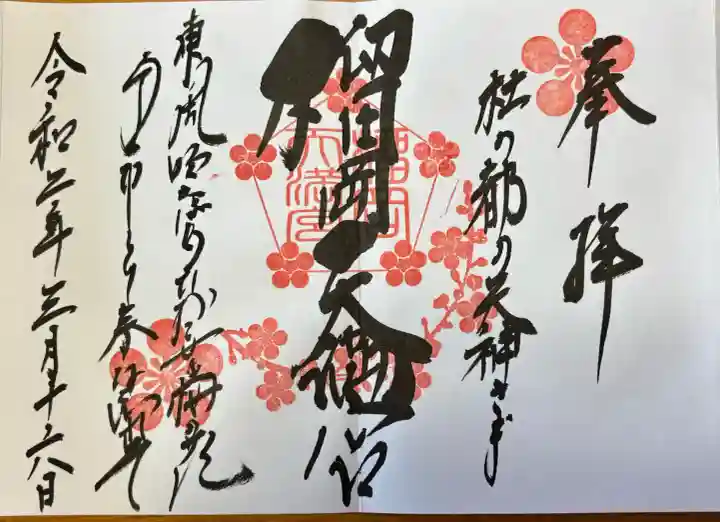 奉拝
杜の都の天神さま
榴岡天満宮
東風吹かばにほひおこせよ梅の花
春な忘れそ
令和二年三月十六日